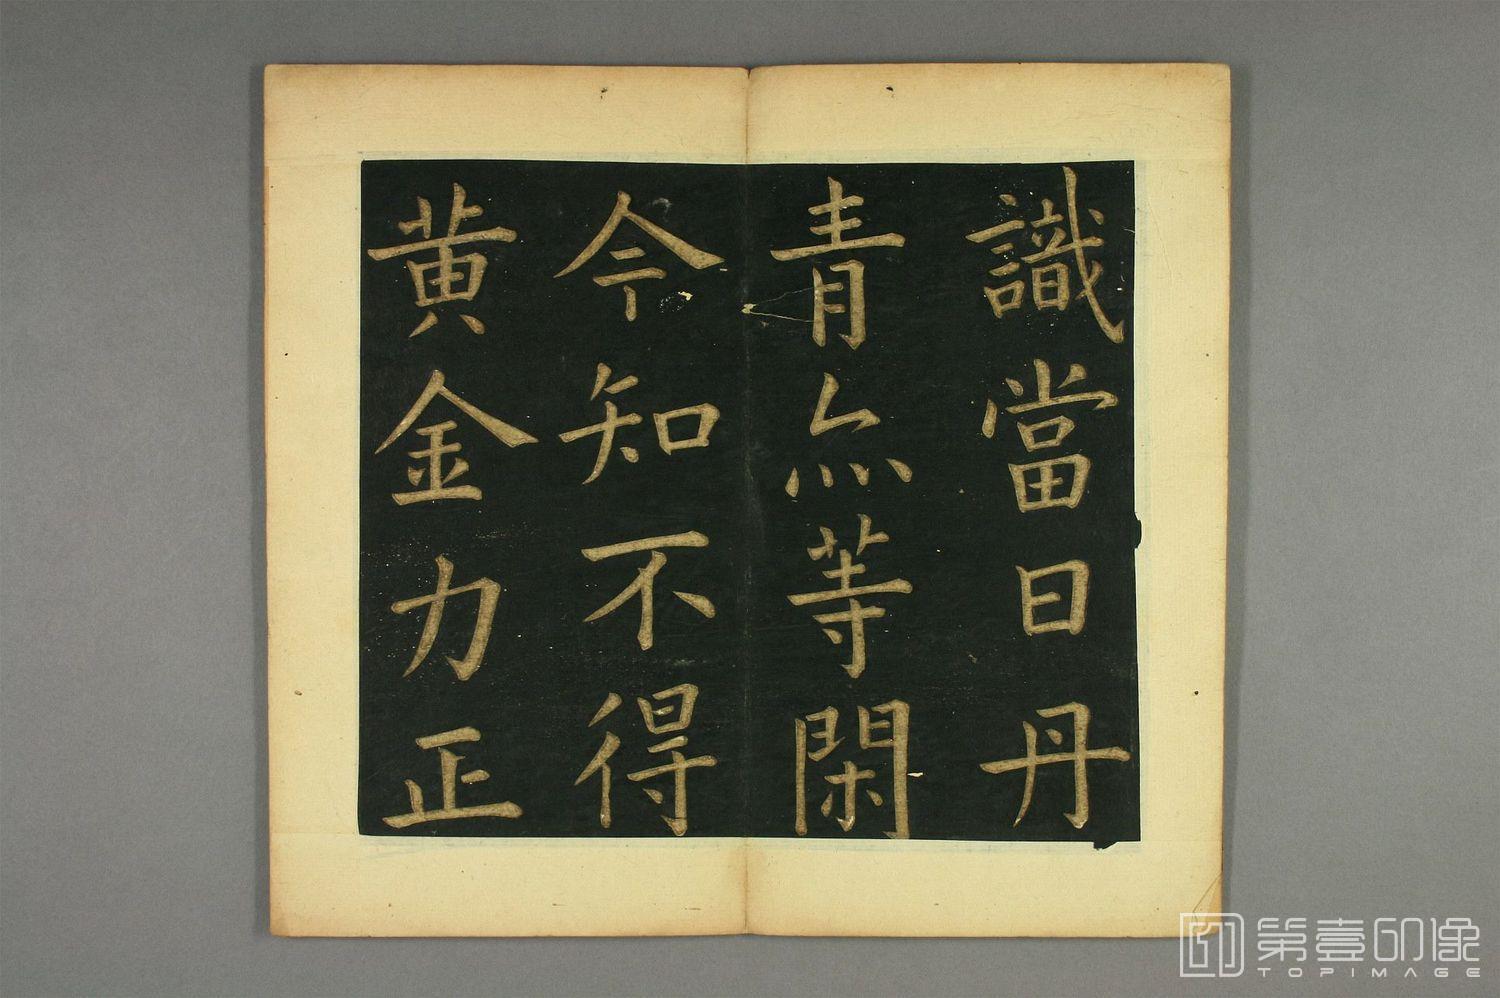 識當日丹
青亦等閑
今知不得
黄金力正
第壹印像
TOPIMAGE